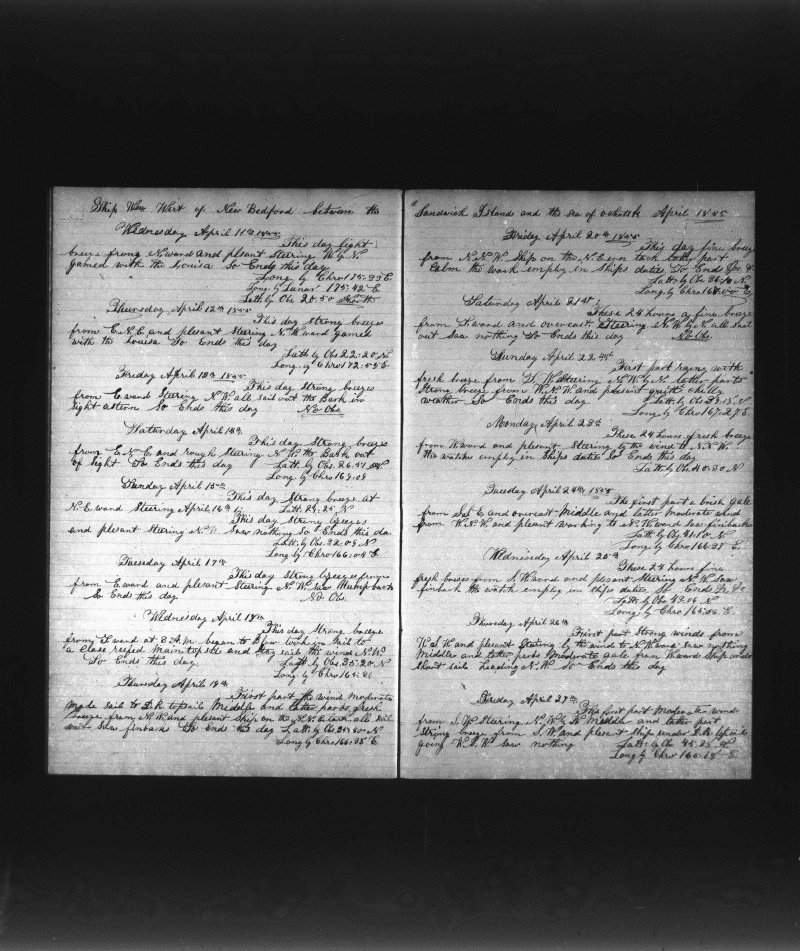 Ship Wm Wirt of New Bedford between the
Wednesday April 11th 1855
This day light
breeze from N. ward and plesant Steering W by N.
gamed with the Louisa So Ends this day
Long by Chro 175:33 E
Long by Lunar 175:42 E
Latt by Obs 20:50 North
Thursday April 12th 1855
This day strong breezes
from E.N.E and plesant Steering N.W. ward Gamed
with the Louisa So Ends this day
Latt by Obs 22:20 N
Long by Chro 172:55 E
Friday April 13th 1855
This day Strong breezes
from E. ward Steering N.W. all sail out the Bark in
Sight astern So Ends this day No Obs
Saturday April 14th
This day Strong breezes
from E.N.E and rough Steering N.W. the Bark out
of Sight So Ends this day Latt by Obs 26:51 N
Long by Chro 169:09
Sunday April 15th
This day Strong breeze at
N.E. ward Steering Latt. 29:25 N
April 16th
This day Strong breezes
and plesant Steering N. Saw nothing So Ends this day
Latt by Obs 32:09 N
Long by Chro 166:04 E
Tuesday April 17th
This day Strong breezes from
from E. ward and plesant Steering N.W. saw Humpback
So Ends this day No Obs
Wednesday April 18th
This day Strong breeze
from S. ward at 2 A.M. began to blow took in Sail to
a close reefed Maintopsle and Stay sails the wind N.W.
So Ends this day Latt by Obs 35:20 N
Long by Chro 165:
Thursday April 19th
First part the wind moderate
made sail to D.R. topsails Meddle and latter parts fresh
breeze from N.W. and plesant Ship on the N.E. tack all sail
out Saw finbacks So Ends the day Latt by Obs 35:50 N
Long by Chro 166:25 E
Sandwich Islands and the sea of ochotsk April 1855
Friday April 20th 1855
This day fine breeze
from N.N.W. Ship on the N.E. ern tack latter part
Calm the watch employ in Ships duties So Ends
Latt by Obs 36: N
Long by Chro 168:00 E
Saturday April 21st
These 24 hours a fine breeze
from S. ward and overcast Steering N.W. by N. all sail
out Saw nothing So Ends this day No Obs
Sunday April 22nd
First part rainy with
fresh breeze from S.W. Steering N.W. by N. latter parts
Strong breeze from W.N.W. and plesant quite chilly
weather So Ends this day Latt by Obs 39:15 N
Long by Chro 167:27 E
Monday April 23th
These 24 hours fresh breeze
from W. ward and plesant Steering by the wind to N.N.W.
the watches employ in Ships duties So Ends this day
Latt by Obs 40:30 N
Tuesday April 24th 1855
The first part a brisk gale
from S E and overcast Middle and latter moderate wind
from W.N.W. and plesant Working to N.W. ward Saw finbacks
Latt by Obs 41:10 N
Long by Chro 166:31 E
Wednesday April 25th
These 24 hours fine
fresh breeses from S.W. ward and plesant Steering N.W. Saw
finback the watch employ in Ships duties So Ends
Latt by Obs 43:06 N
Long by Chro 165: E
Thursday April 26th
First part Strong winds from
W.S.W. and plesant Stering by the wind to N.W. ward Saw nothing
Middle and latter parts Moderate gale from W. ward Ship under
Short sail heading N.W. So Ends this day
Friday April 27th
The first part Moderate winds
from S.W. Steering N.W. by N. Middle and latter part
Strong breeze from S.W. and plesant Ship under D.R. topsails
going W.S.W. Saw nothing Latt by Obs 45:23 N
Long by Chro 165:18 E